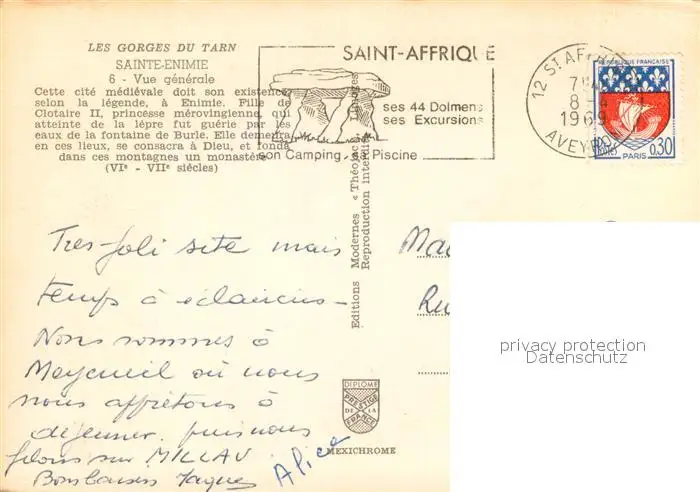 LES GORGES DU TARN
SAINTE-ENIMIE
6 - Vue générale
Cette cité médiévale doit son existence,
selon la légende, à Enimie. Fille de
Clotaire II, princesse mérovingienne, qui
atteinte de la lèpre fut guérie par les
eaux de la fontaine de Burle. Elle demeura
en ces lieux, se consacra à Dieu, et fonda
dans ces montagnes un monastère
(VIe - VIIe siècles)
SAINT-AFFRIQUE
ses 44 Dolmens
ses Excursions
son Camping, sa Piscine
12 ST AFFRIQUE
1969
AVEYRON
REPUBLIQUE FRANÇAISE
POSTES
PARIS
0,30
Editions Modernes « Théojac » Limoges
Reproduction interdite
Très joli site mais
temps à éclaircies -
Nous sommes à
Meyrueil où nous
nous apprêtons à
déjeuner. puis nous
filons sur MILLAU
Bons baisers Jaques
Alice
Ru
DIPLOME
PRESTIGE
DE LA
FRANCE
MEXICHROME
privacy protection
Datenschutz